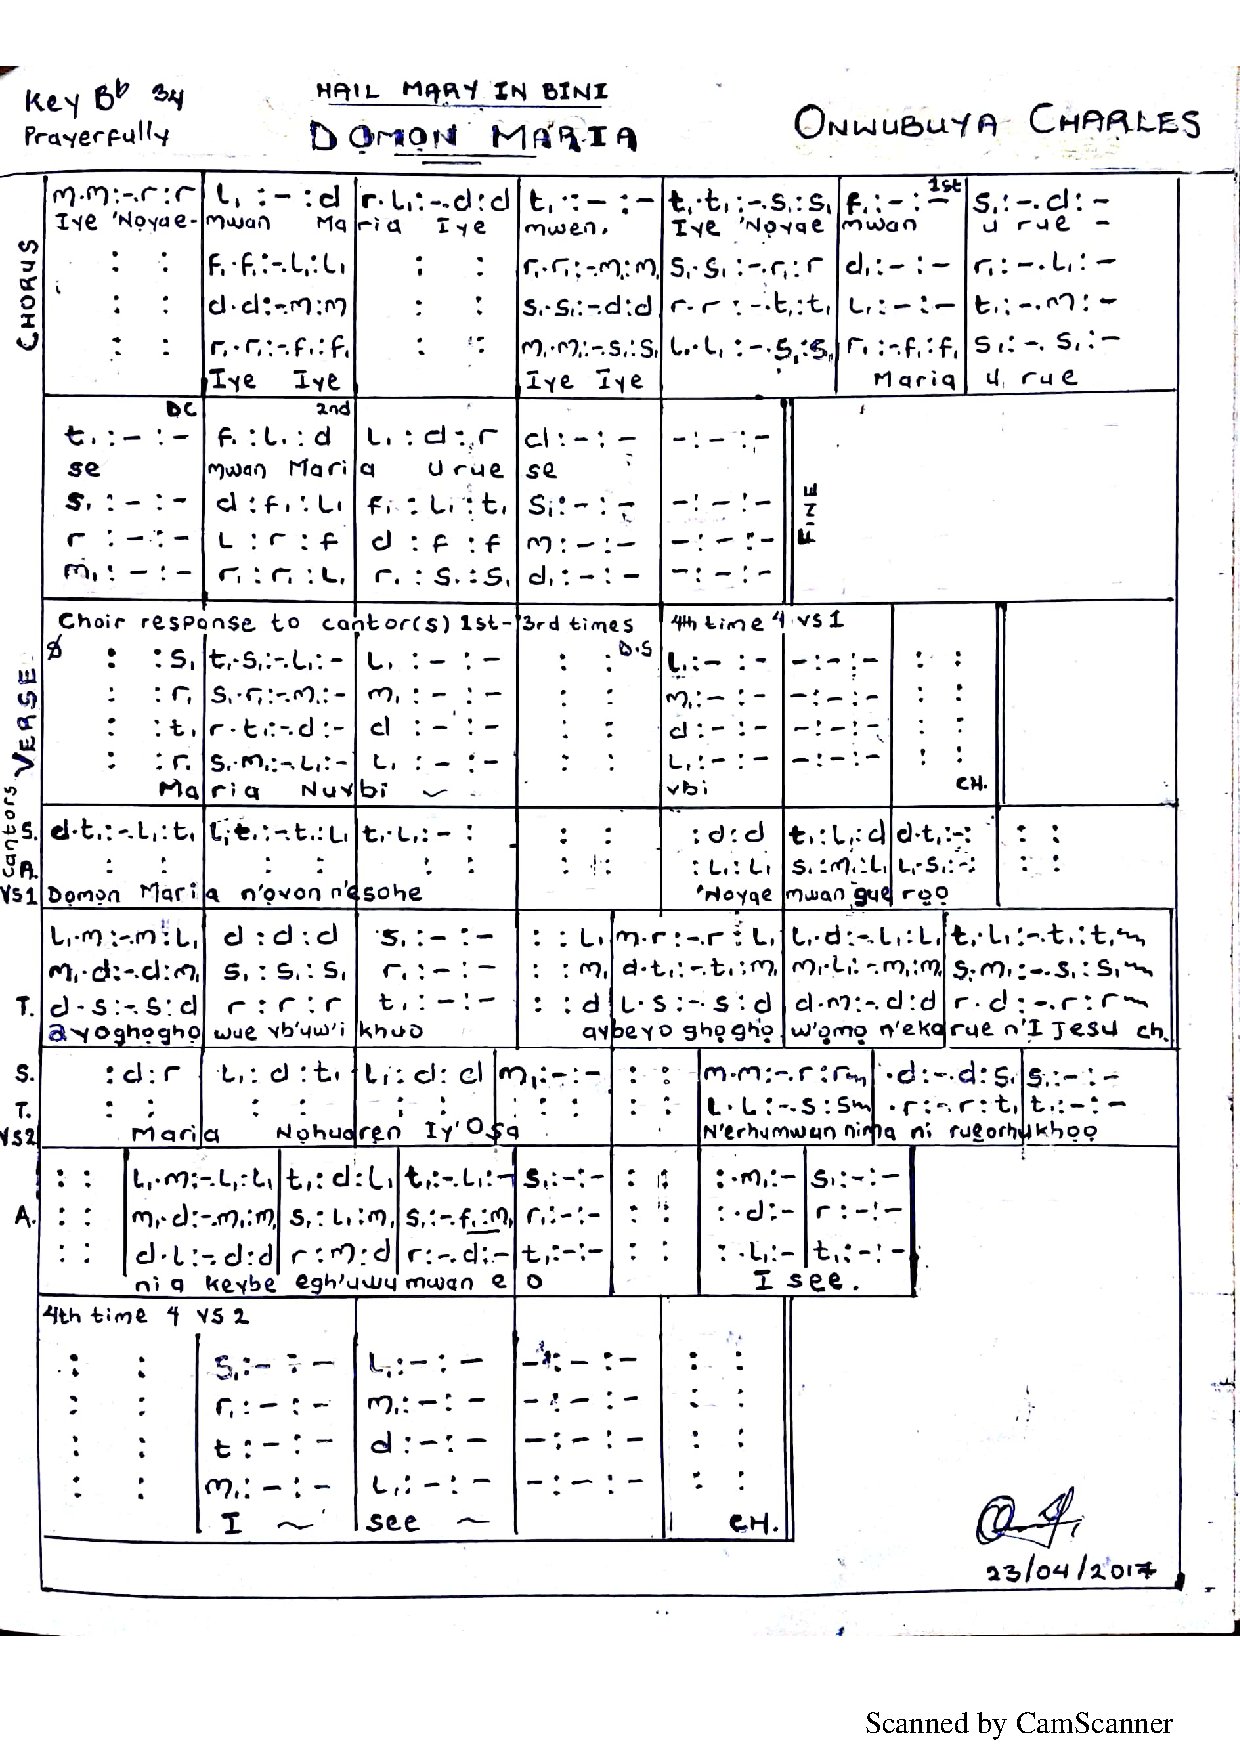 Key Bb 3/4
HAIL MARY IN BINI
Prayerfully
DOMON MARIA
ONWUBUYA CHARLES
CHORUS
m.m:-.r:r | l, :- :d | r.l,:-.d:d | t, :- :- | t,.t,:-.s,:s, | f, :- :- 1st | s,:-.d:-
Iye 'Noyae- mwan Ma ria Iye mwen, Iye 'Noyae mwan u rue -
: : | f,.f,:-.l,:l, | : : | r,.r,:-.m,:m, | s,.s,:-.r,:r | d,:-:- | r,:-.l,:-
: : | d.d:-.m:m | : : | s,.s,:-.d:d | r.r:-.t,:t, | l,:-:- | t,:-.m:-
: : | r,.r,:-.f,:f, | : : | m,.m,:-.s,:s, | l,.l,:-.s,:s, | r,:-f,:f, | s,:-.s,:-
Iye Iye Iye Iye Maria u rue
DC 2nd
t,:-:- | f,:l,:d | l,:d:,r | d:-:- | -:-:-
se mwan Maria u rue se
s,:-:- | d:f,:l, | f,:l,:t, | s,:-:- | -:-:-
r:-:- | l:r:f | d:f:f | m:-:- | -:-:-
m,:-:- | r,:r,:l, | r,:s,:s, | d,:-:- | -:-:-
FINE
VERSE
Choir response to cantor(s) 1st-3rd times 4th time 4 vs 1
: :s, | t,.s,:-.l,:- | l,:-:- | : : D.S | l,:-:- | -:-:- | : :
: :r, | s,.r,:-.m,:- | m,:-:- | : : | m,:-:- | -:-:- | : :
: :t, | r.t,:-.d:- | d:-:- | : : | d:-:- | -:-:- | : :
: :r, | s,.m,:-.l,:- | l,:-:- | : : | l,:-:- | -:-:- | : :
Maria Nuvbi ~ vbi CH.
Cantors
S. d.t,:-.l,:t, | l,.t,:-.t,:l, | t,.l,:-: | : : | :d:d | t,:l,:d | d.t,:-: | : :
A. : : | : : | : : | : : | :l,:l, | s,:m,:l, | l,.s,:-: | : :
VS1 Domon Maria n'ovon n'esohe 'Noyae mwan gue roo
l,.m:-.m:l, | d:d:d | s,:-:- | : :l, | m.r:-.r:l, | l,.d:-.l,:l, | t,.l,:-.t,:t,
m,.d:-.d:m, | s,:s,:s, | r,:-:- | : :m, | d.t,:-.t,:m, | m,.l,:-.m,:m, | s,.m,:-.s,:s,
T. d.s:-.s:d | r:r:r | t,:-:- | : :d | l.s:-.s:d | d.m:-.d:d | r.d:-.r:r
ayoghogho wue vb'uw'i khuo aybeyo ghogho w'omo n'eka rue n'I Jesu ch.
S. :d:r | l,:d:t, | l,:d:d | m,:-:- | : : | m.m:-.r:r | .d:-.d:s, | s,:-:-
T. : : | : : | : : | : : | : : | l.l:-.s:s | .r:-.r:t, | t,:-:-
VS2 Maria Nohuaren Iy'Osa N'erhumwun nima ni rueorhukhoo
: : | l,.m:-.l,:l, | t,:d:l, | t,:-.l,:- | s,:-:- | : : | :.m,:- | s,:-:-
A. : : | m,.d:-.m,:m, | s,:l,:m, | s,:-.f,:m, | r,:-:- | : : | :.d:- | r:-:-
: : | d.l:-.d:d | r:m:d | r:-.d:- | t,:-:- | : : | :.l,:- | t,:-:-
ni a keybe egh'uwu mwan e o I see.
4th time 4 VS 2
: : | s,:-:- | l,:-:- | -:-:- | : :
: : | r,:-:- | m,:-:- | -:-:- | : :
: : | t:-:- | d:-:- | -:-:- | : :
: : | m,:-:- | l,:-:- | -:-:- | : :
I ~ see ~ CH.
23/04/2017
Scanned by CamScanner